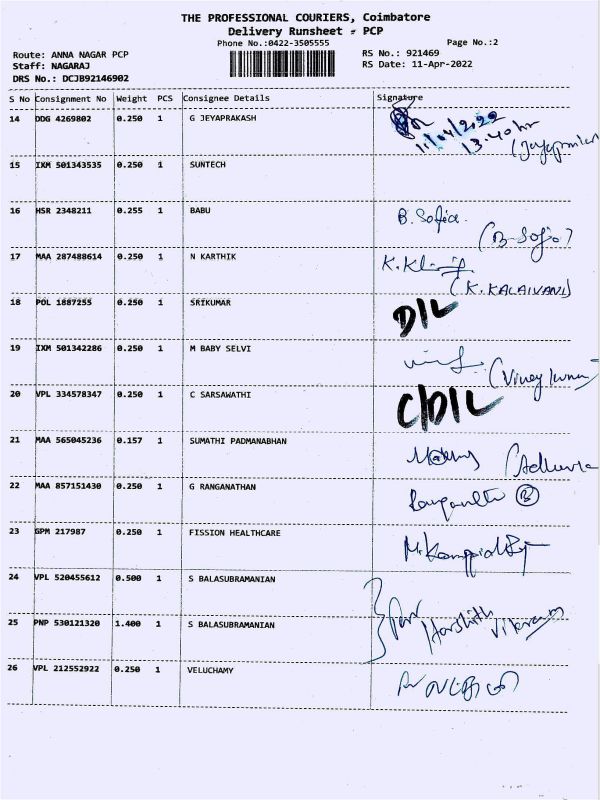 THE PROFESSIONAL COURIERS, Coimbatore
Delivery Runsheet - PCP
Phone No.:0422-3505555 Page No.:2
Route: ANNA NAGAR PCP RS No.: 921469
Staff: NAGARAJ RS Date: 11-Apr-2022
DRS No.: DCJB92146902
S No Consignment No Weight PCS Consignee Details Signature
14 DDG 4269802 0.250 1 G JEYAPRAKASH
11/04/2022
13.40hr
15 IXM 501343535 0.250 1 SUNTECH
16 HSR 2348211 0.255 1 BABU B. Sofia
(B-Sofia)
17 MAA 287488614 0.250 1 N KARTHIK
(K. KALAIVANI)
18 POL 1887255 0.250 1 SRIKUMAR D/L
19 IXM 501342286 0.250 1 M BABY SELVI
20 VPL 334578347 0.250 1 C SARSAWATHI C/D/L
21 MAA 565045236 0.157 1 SUMATHI PADMANABHAN
22 MAA 857151430 0.250 1 G RANGANATHAN
23 GPM 217987 0.250 1 FISSION HEALTHCARE
24 VPL 520455612 0.500 1 S BALASUBRAMANIAN
25 PNP 530121320 1.400 1 S BALASUBRAMANIAN Harshith Vikram
26 VPL 212552922 0.250 1 VELUCHAMY